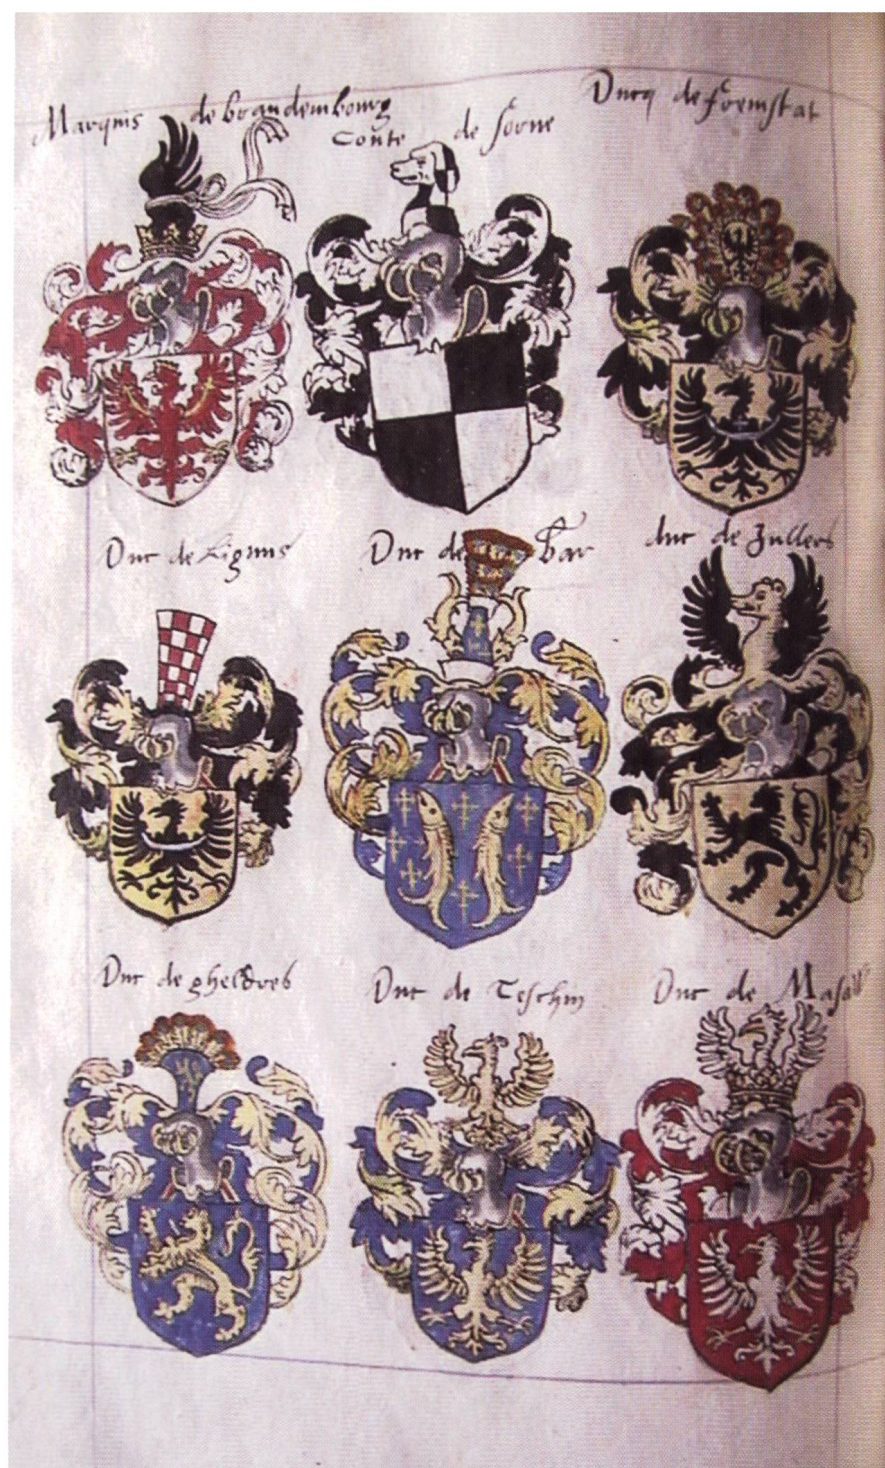 Marquis de brandembourg
Conte de sorne
Ducq de freinstat
Duc de Lignus
Duc de Bar
duc de Jullers
Duc de gheldres
Duc de Teschin
Duc de